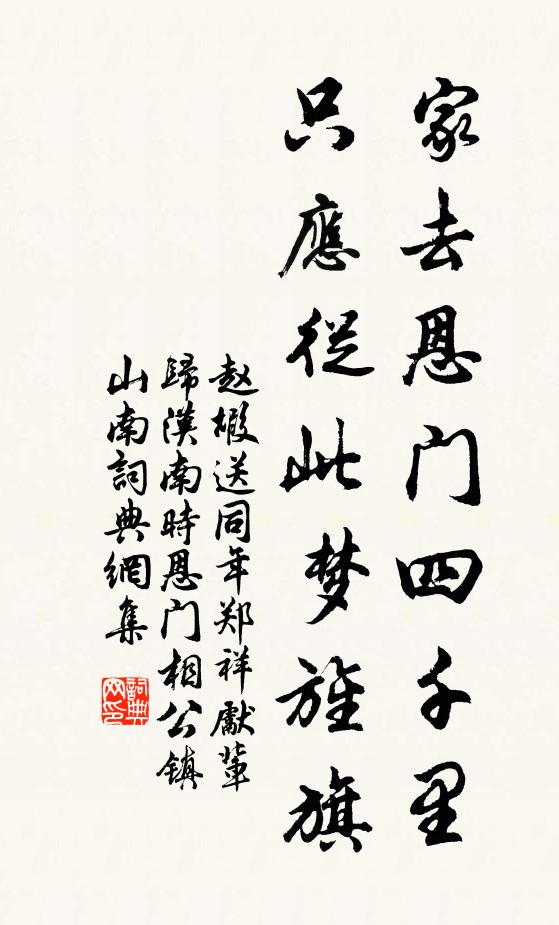 家去恩门四千里
只應從此梦旌旗
赵嘏送同年郑祥獻輩
歸漢南時恩门相公镇
山南詞典網集
詞典网印